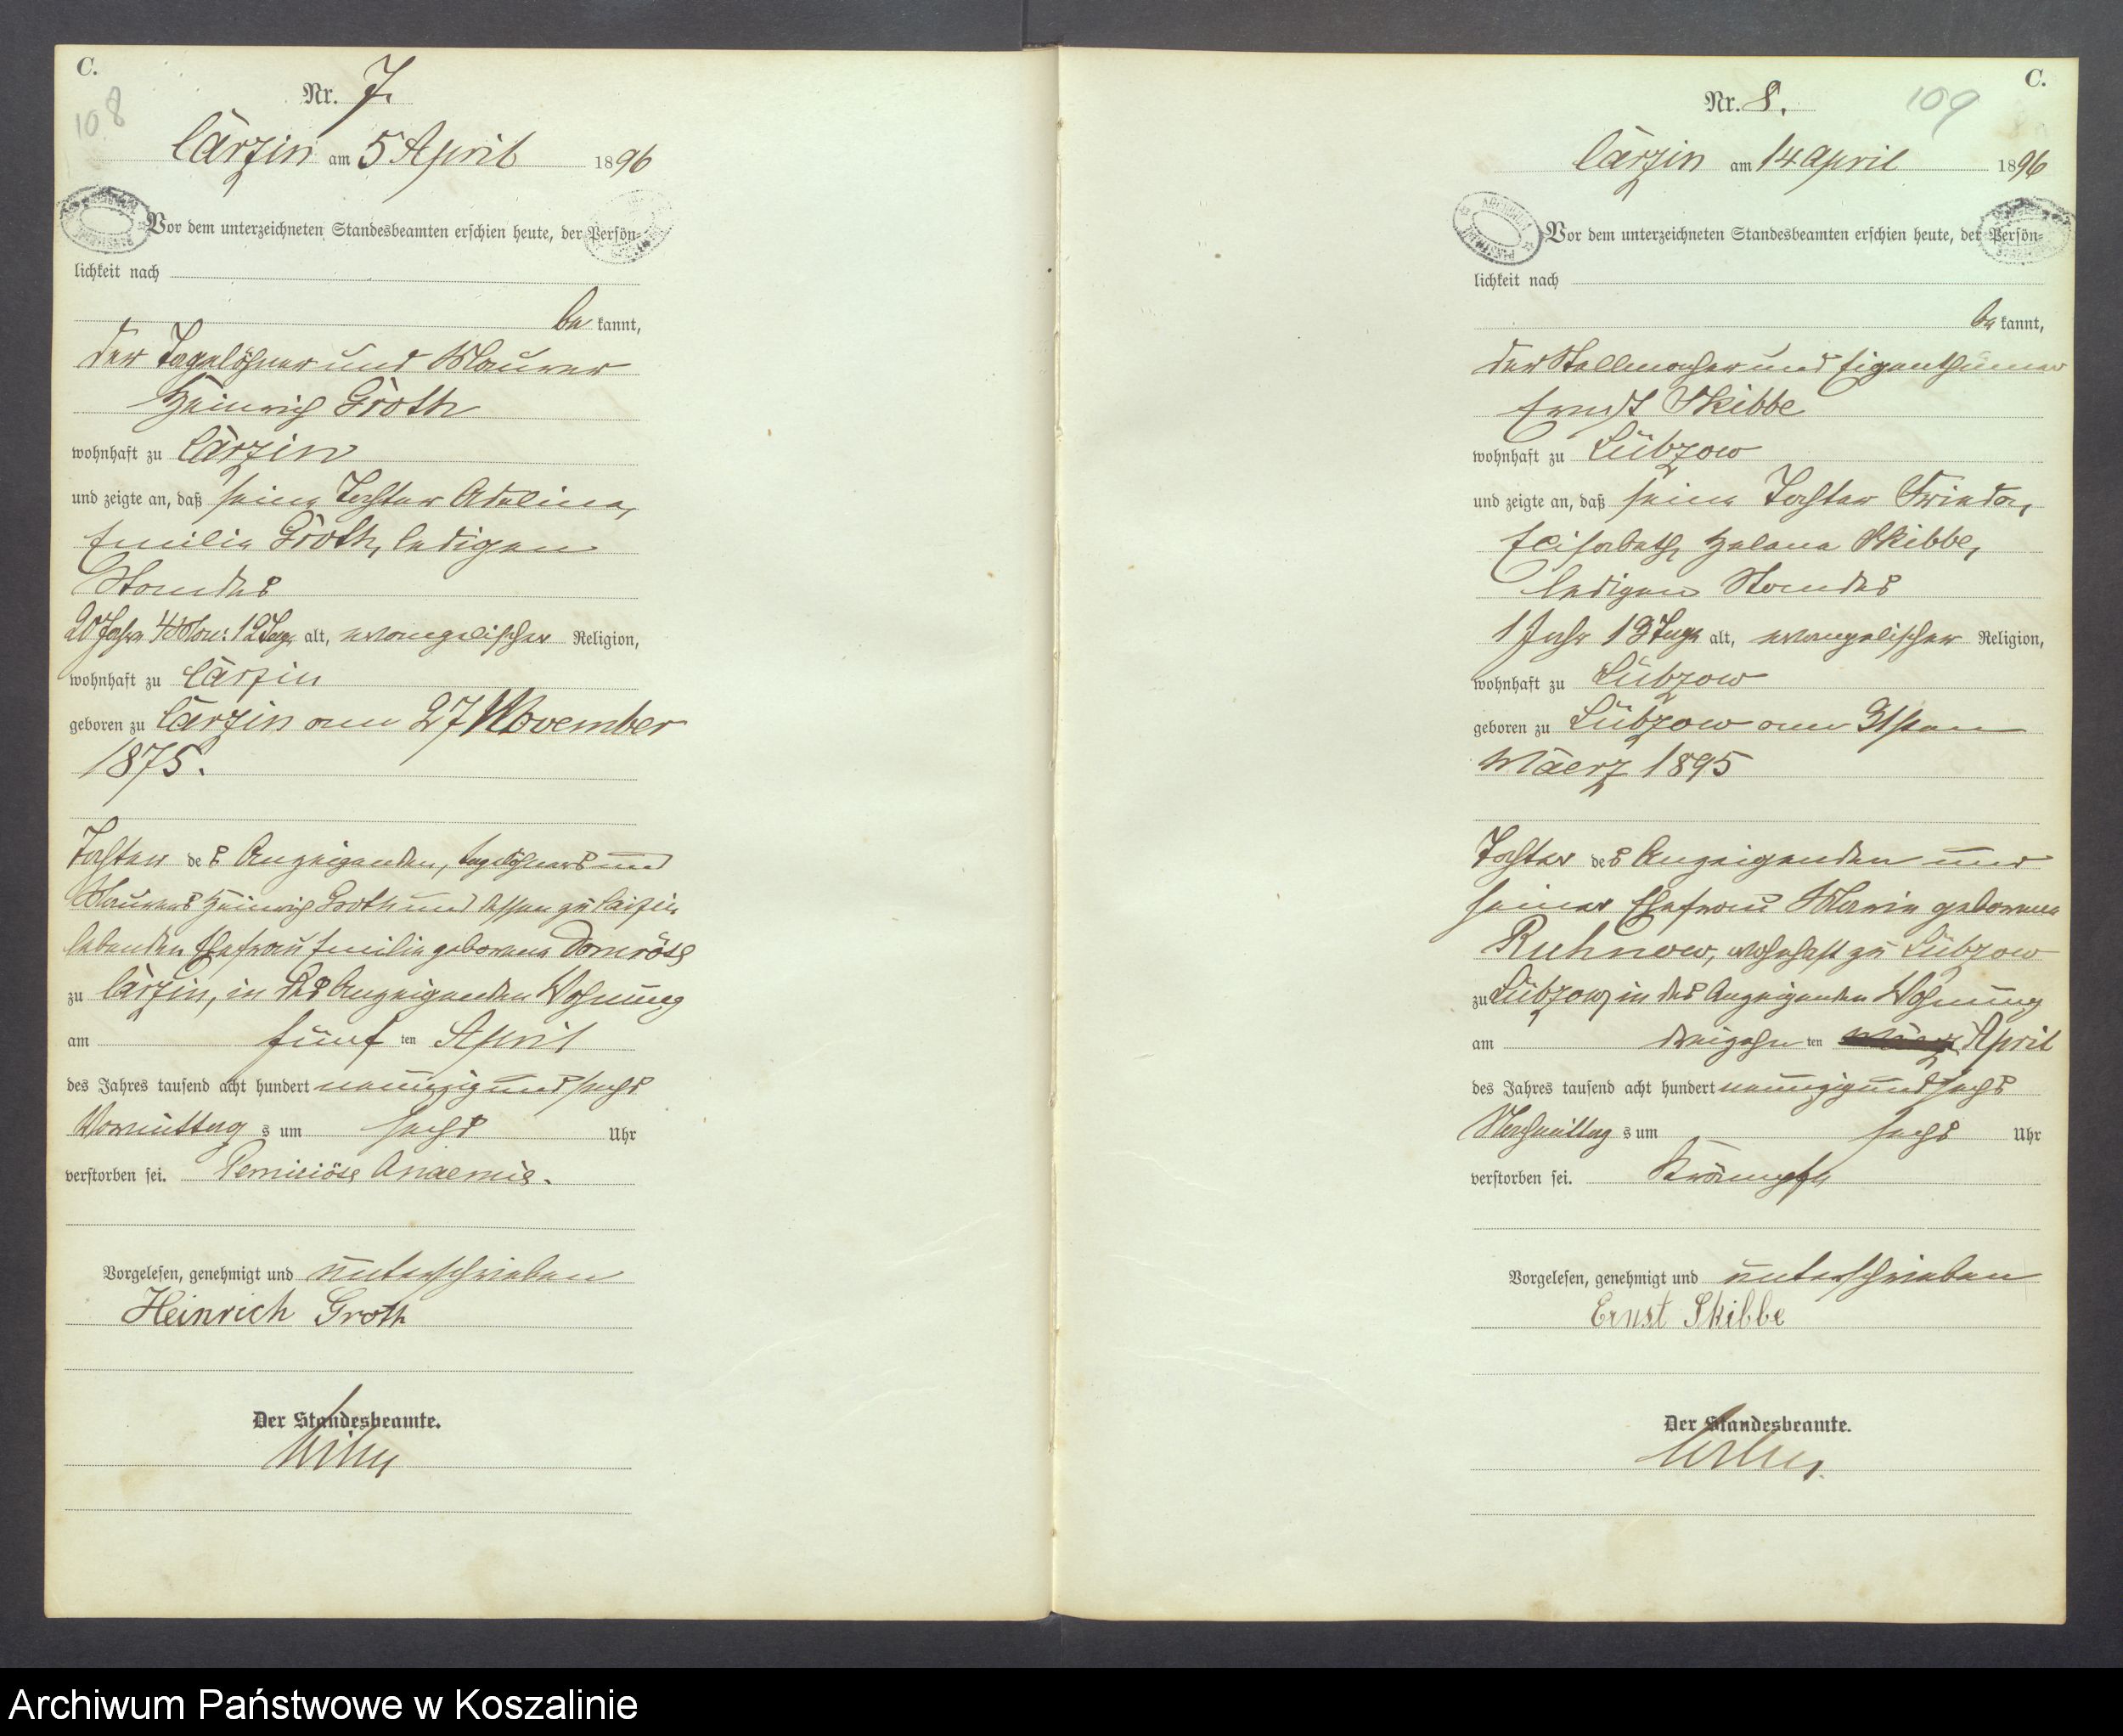 C.
108
Nr. 7.
Cärzin am 5 April 1896
Vor dem unterzeichneten Standesbeamten erschien heute, der Persön-
lichkeit nach
be kannt,
der Tagelöhner und Maurer
Heinrich Groth
wohnhaft zu Cärzin
und zeigte an, daß seine Tochter Adeline,
Emilie Groth, ledigen
Standes
20 Jahre 4 Mon: 12 Tage alt, evangelischer Religion,
wohnhaft zu Cärzin
geboren zu Cärzin am 27 November
1875.
Tochter des Anzeigenden, Tagelöhners und
Maurers Heinrich Groth und dessen zu Cärzin
lebenden Ehefrau Emilie geborene Domröse
zu Cärzin, in des Anzeigenden Wohnung
am fünf ten April
des Jahres tausend acht hundert neunzig und sechs
Vormittag s um sechs Uhr
verstorben sei. Perniciöse Anaemie.
Vorgelesen, genehmigt und unterschrieben
Heinrich Groth
Der Standesbeamte.
C.
109
Nr. 8.
Cärzin am 14 April 1896
Vor dem unterzeichneten Standesbeamten erschien heute, der Persön-
lichkeit nach
be kannt,
der Stellmacher und Eigenthümer
Ernst Skibbe
wohnhaft zu Lübzow
und zeigte an, daß seine Tochter Frieda,
Elisabeth Helene Skibbe,
ledigen Standes
1 Jahr 13 Tage alt, evangelischer Religion,
wohnhaft zu Lübzow
geboren zu Lübzow am 31sten
Maerz 1895
Tochter des Anzeigenden und
seiner Ehefrau Marie geborene
Ruhnow, wohnhaft zu Lübzow
zu Lübzow, in des Anzeigenden Wohnung
am dreizehn ten April
des Jahres tausend acht hundert neunzig und sechs
Nachmittag s um sechs Uhr
verstorben sei. Krämpfe
Vorgelesen, genehmigt und unterschrieben
Ernst Skibbe
Der Standesbeamte.
Archiwum Państwowe w Koszalinie